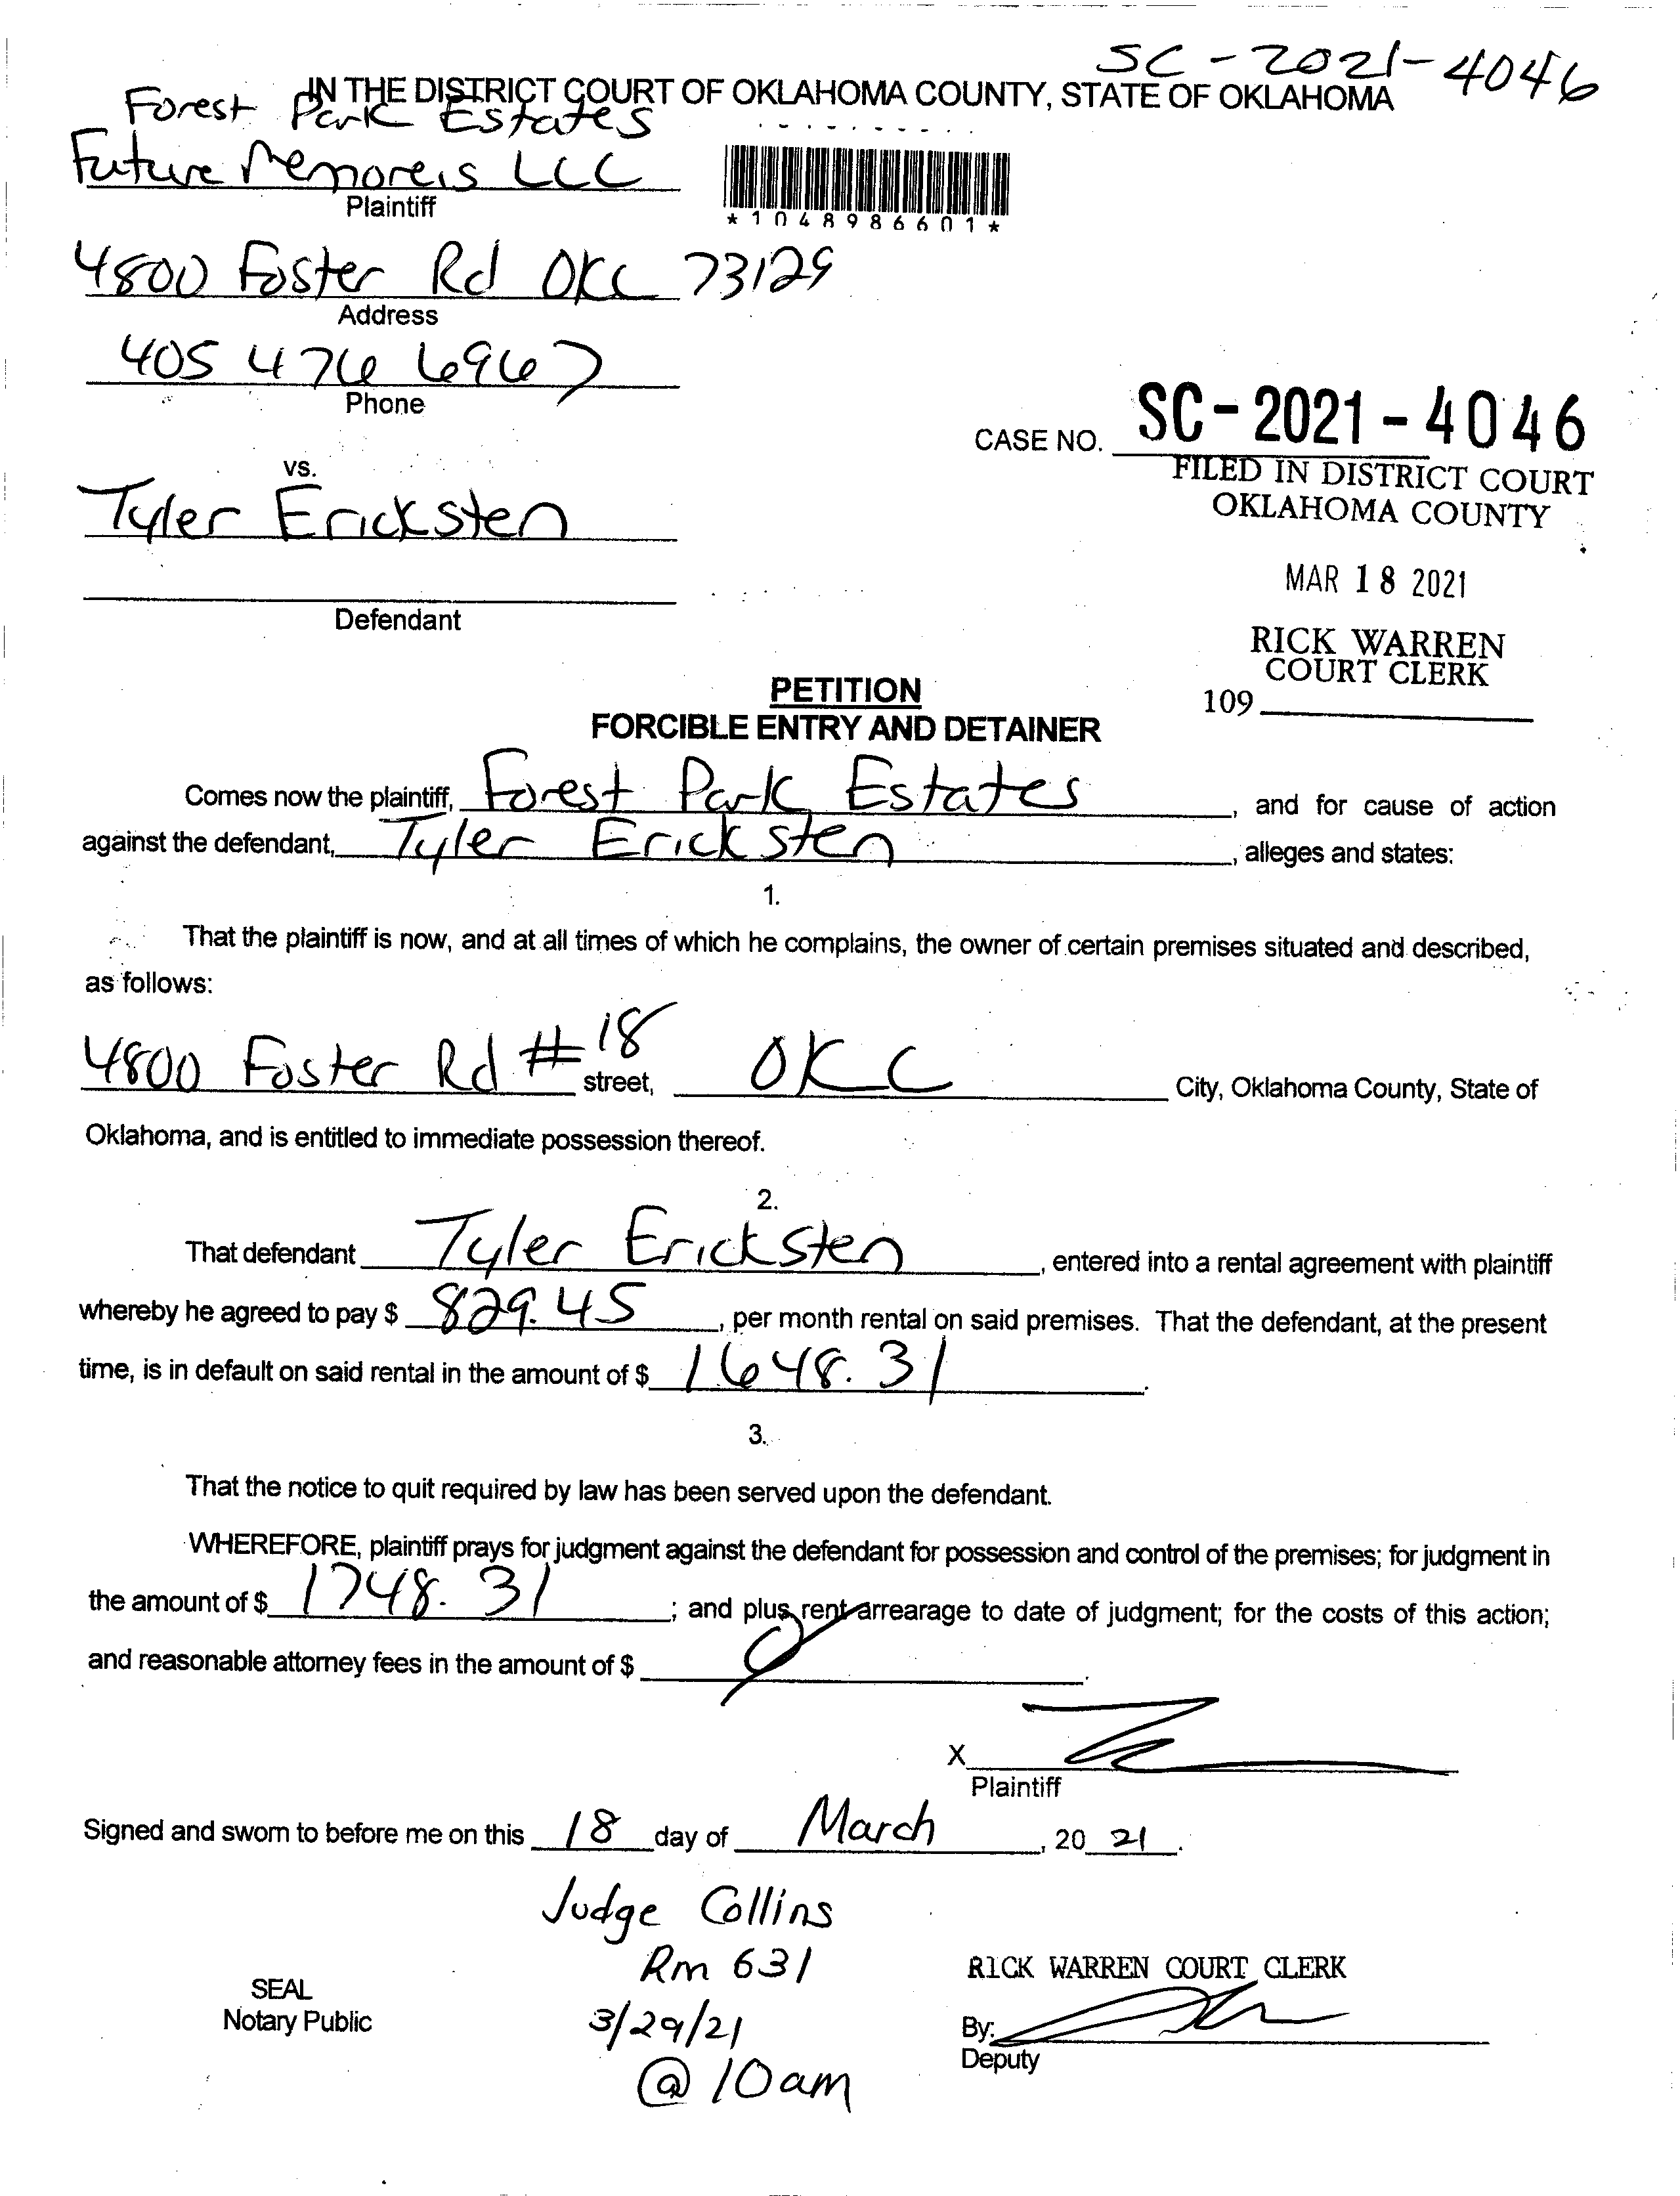 SC-2021-4046
IN THE DISTRICT COURT OF OKLAHOMA COUNTY, STATE OF OKLAHOMA
Forest Park Estates
Future Memoreis LLC
Plaintiff
*1048986601*
4800 Foster Rd OKC 73129
Address
405 476 6967
Phone
CASE NO. SC-2021-4046
FILED IN DISTRICT COURT
OKLAHOMA COUNTY
vs.
Tyler Ericksten
MAR 18 2021
Defendant
RICK WARREN
COURT CLERK
109
PETITION
FORCIBLE ENTRY AND DETAINER
Comes now the plaintiff, Forest Park Estates, and for cause of action
against the defendant, Tyler Ericksten, alleges and states:
1.
That the plaintiff is now, and at all times of which he complains, the owner of certain premises situated and described,
as follows:
4800 Foster Rd #18 street, OKC City, Oklahoma County, State of
Oklahoma, and is entitled to immediate possession thereof.
2.
That defendant Tyler Ericksten, entered into a rental agreement with plaintiff
whereby he agreed to pay $ 829.45, per month rental on said premises. That the defendant, at the present
time, is in default on said rental in the amount of $ 1648.31.
3.
That the notice to quit required by law has been served upon the defendant.
WHEREFORE, plaintiff prays for judgment against the defendant for possession and control of the premises; for judgment in
the amount of $ 1748.31; and plus rent arrearage to date of judgment; for the costs of this action;
and reasonable attorney fees in the amount of $
X
Plaintiff
Signed and sworn to before me on this 18 day of March, 20 21.
Judge Collins
Rm 631
3/29/21
@ 10am
SEAL
Notary Public
RICK WARREN COURT CLERK
By:
Deputy